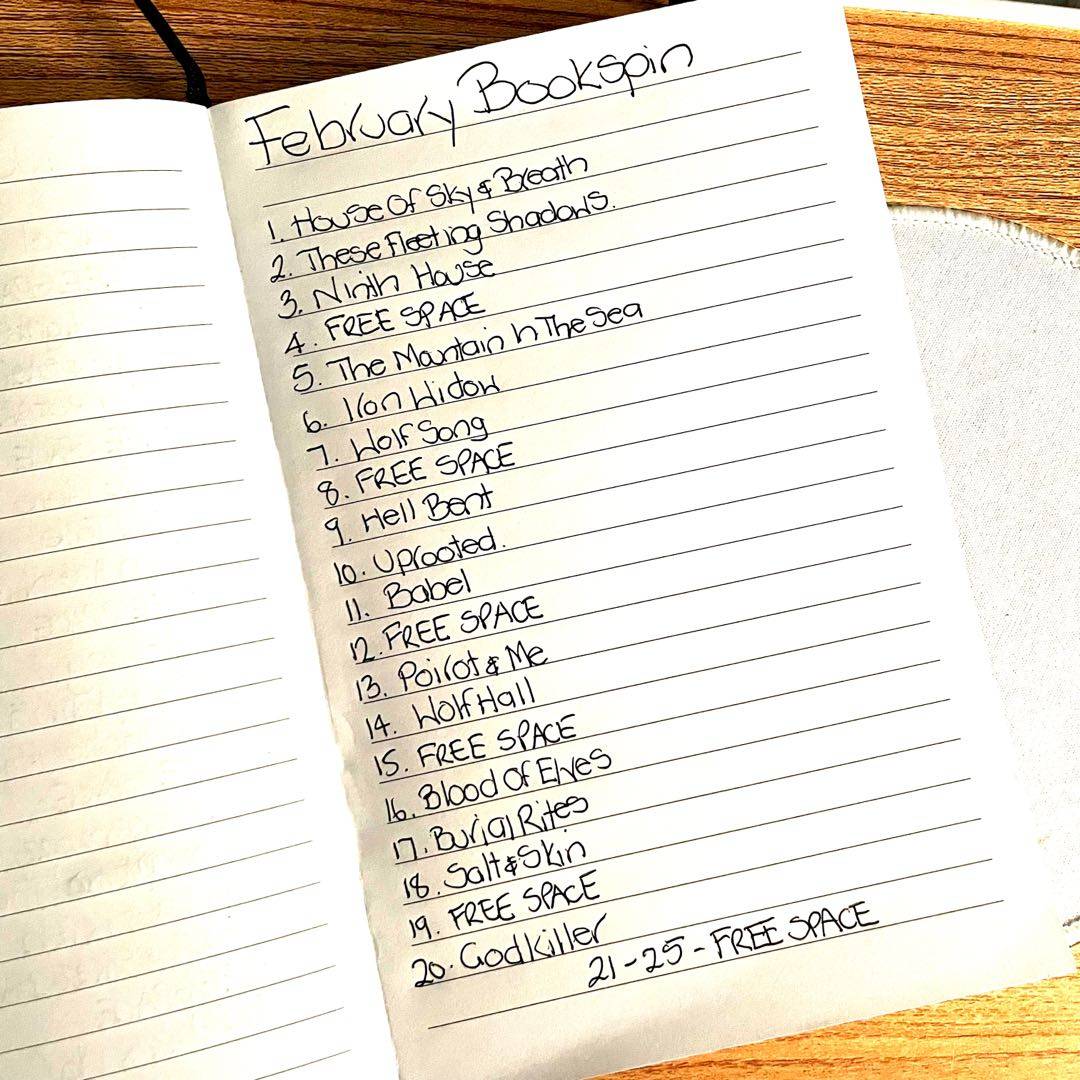 February Bookspin
1. House Of Sky & Breath
2. These Fleeting Shadows.
3. Ninth House
4. FREE SPACE
5. The Mountain In The Sea
6. Iron Widow
7. Wolf Song
8. FREE SPACE
9. Hell Bent
10. Uprooted.
11. Babel
12. FREE SPACE
13. Poirot & Me
14. Wolf Hall
15. FREE SPACE
16. Blood Of Elves
17. Burial Rites
18. Salt & Skin
19. FREE SPACE
20. Godkiller
21-25 - FREE SPACE